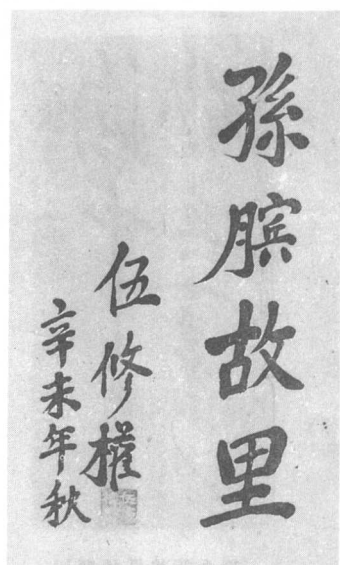 孫臏故里
伍修權
辛未年秋